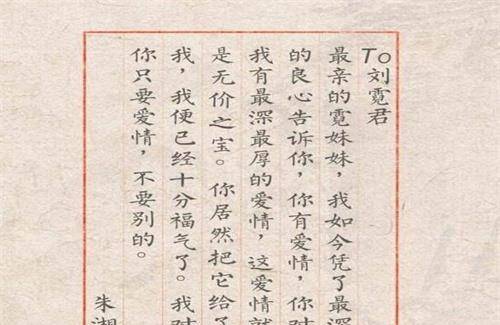 To刘霓君
最亲的霓妹妹，我如今凭了最深
的良心告诉你，你有爱情，你对
我有最深最厚的爱情，这爱情就
是无价之宝。你居然把它给了
我，我便已经十分福气了。我对
你只要爱情，不要别的。
朱湘